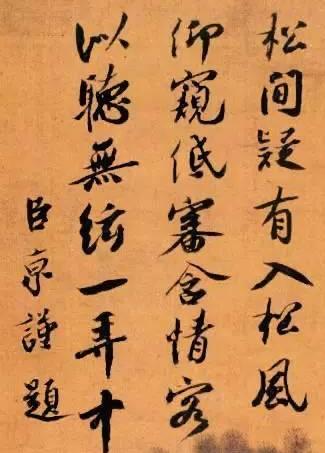 松間疑有入松風
仰窺低審含情客
以聽無絃一弄中
臣京謹題